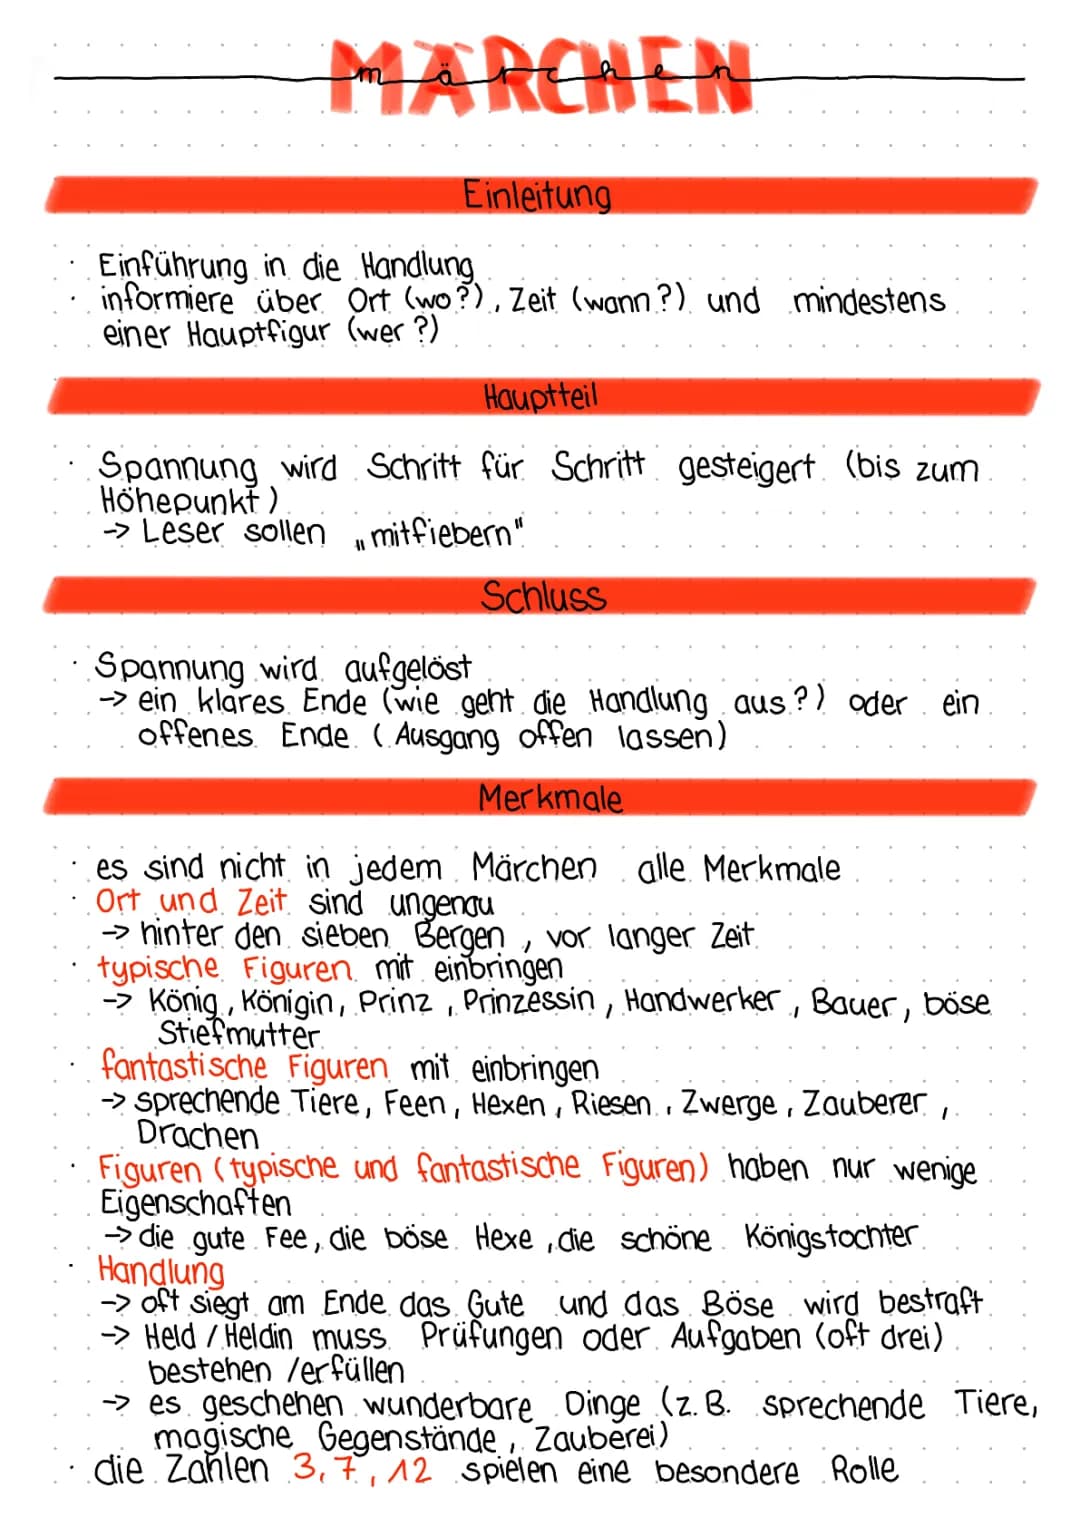 MÄRCHEN
märchen
Einleitung
· Einführung in die Handlung
· informiere über Ort (wo?), Zeit (wann?) und mindestens
einer Hauptfigur (wer?)
Hauptteil
· Spannung wird Schritt für Schritt gesteigert (bis zum
Höhepunkt)
→ Leser sollen „mitfiebern"
Schluss
· Spannung wird aufgelöst
→ ein klares Ende (wie geht die Handlung aus?) oder ein
offenes Ende (Ausgang offen lassen)
Merkmale
· es sind nicht in jedem Märchen alle Merkmale
· Ort und Zeit sind ungenau
→ hinter den sieben Bergen, vor langer Zeit
· typische Figuren mit einbringen
→ König, Königin, Prinz, Prinzessin, Handwerker, Bauer, böse
Stiefmutter
· fantastische Figuren mit einbringen
→ sprechende Tiere, Feen, Hexen, Riesen, Zwerge, Zauberer,
Drachen
· Figuren (typische und fantastische Figuren) haben nur wenige
Eigenschaften
→ die gute Fee, die böse Hexe, die schöne Königstochter
· Handlung
→ oft siegt am Ende das Gute und das Böse wird bestraft
→ Held / Heldin muss Prüfungen oder Aufgaben (oft drei)
bestehen /erfüllen
→ es geschehen wunderbare Dinge (z.B. sprechende Tiere,
magische Gegenstände, Zauberei)
· die Zahlen 3, 7, 12 spielen eine besondere Rolle